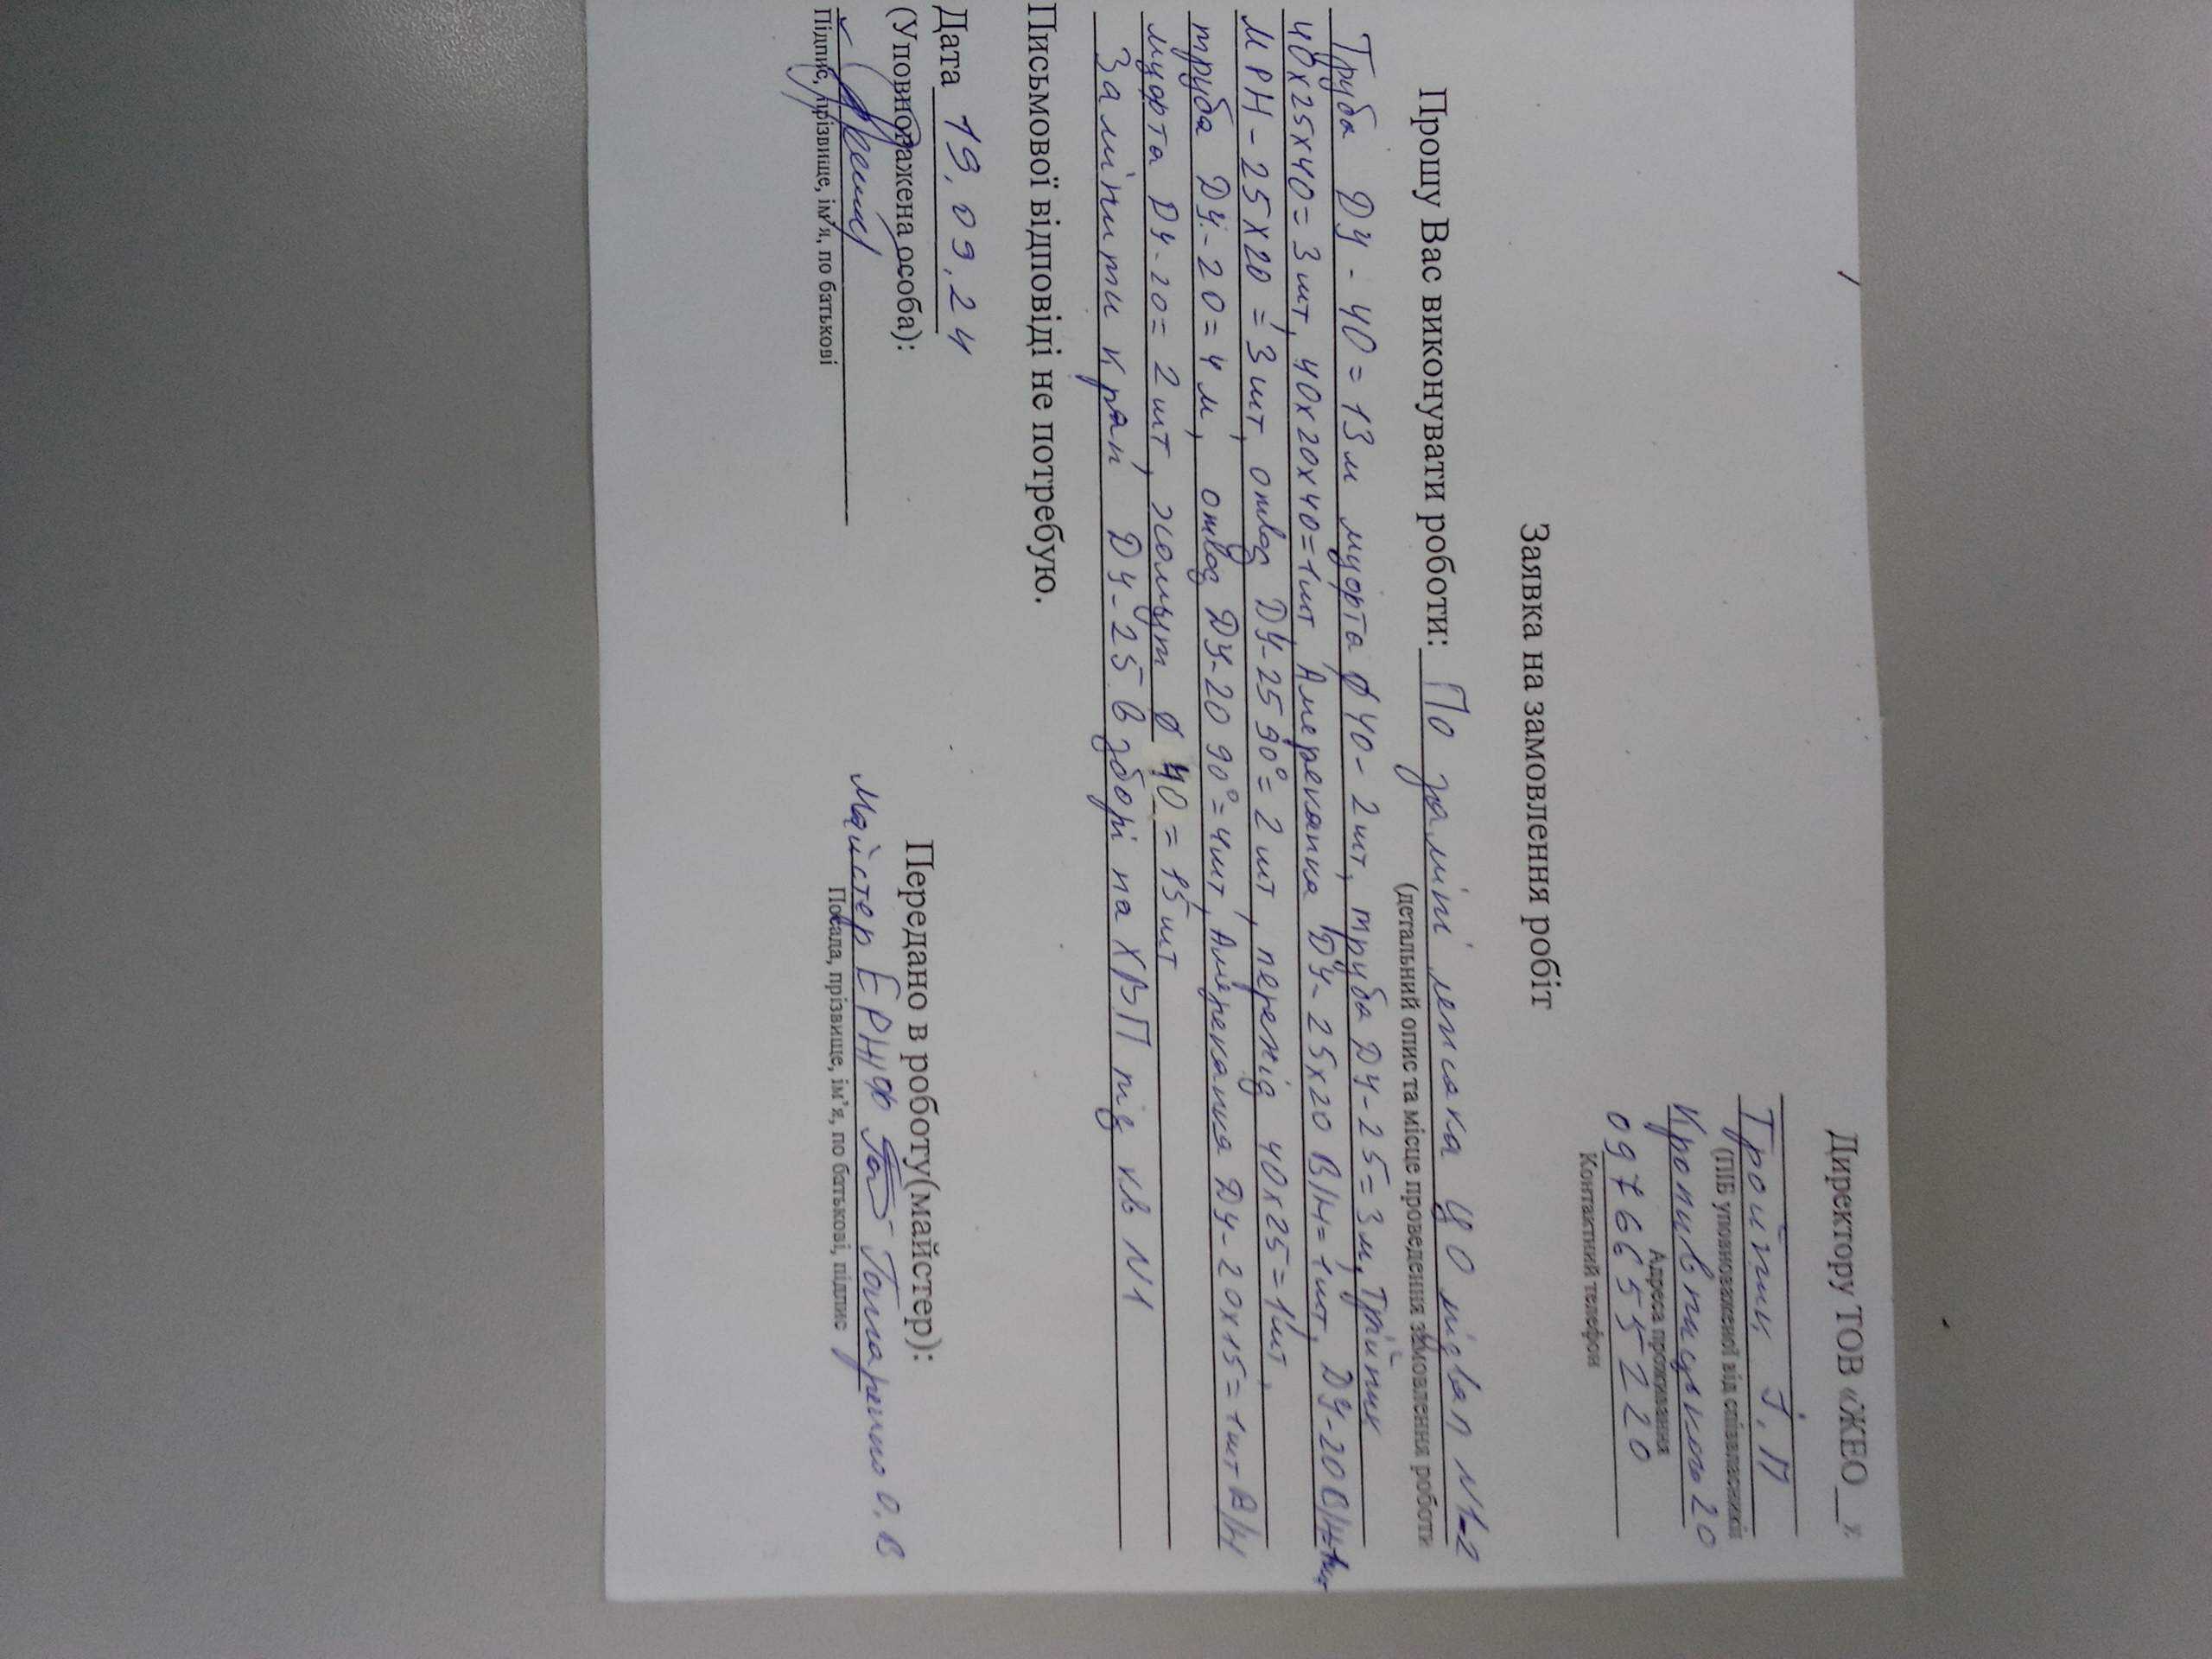 Директору ТОВ «ЖЕО
Тройтик І. П
(ПІБ уповноваженої від співвласників
Кропивницького 20
Адреса проживання
0976655220
Контактний телефон
Заявка на замовлення робіт
Прошу Вас виконувати роботи: По заміні лежака ЦО підвал N1-2
(детальний опис та місце проведення замовлення роботи
Труба ДУ-40=13м муфта ф40-2шт, труба ДУ-25=3м, Трійник
40х25х40=3шт, 40х20х40=1шт, Американка ДУ-25х20 В/Н=1шт, ДУ-20 В/Н=1шт
МРН-25х20=3шт, отвод ДУ-25 90°=2шт, перехід 40х25=1шт,
труба ДУ-20=4м, отвод ДУ-20 90°=4шт, Американка ДУ-20х15=1шт В/Н
муфта ДУ-20=2шт, хомут ф 40=15шт
Замінити кран ДУ-25 в зборі на ХВП під кв N1
Письмової відповіді не потребую.
Дата 19.09.24
(Уповноважена особа):
Підпис, прізвище, ім'я, по батькові
Передано в роботу(майстер):
Майстер ЕРНФ О.В
Посада, прізвище, ім'я, по батькові, підпис